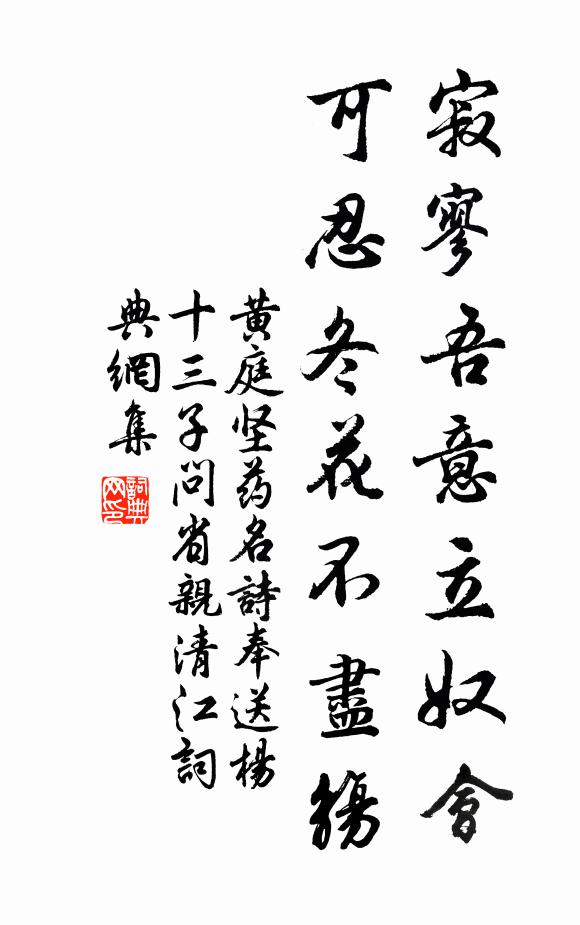 寂寥吾意立奴會
可忍冬花不盡觴
黄庭坚药名詩奉送楊
十三子問省親清江詞
典網集
詞典
网印